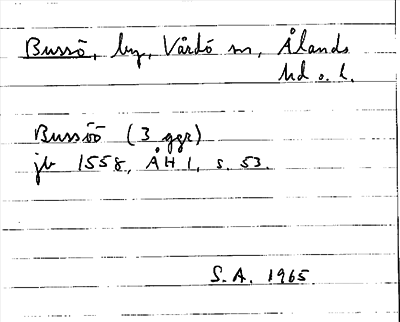 Bussö, by, Vårdö sn, Ålands
hd o. l.
Bussöö (3 ggr)
jb 1558, ÅH 1, s. 53.
S.A. 1965